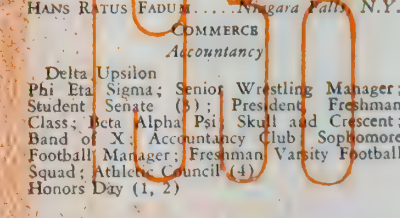 HANS RATUS FADUM.....Niagara Falls, N.Y.
COMMERCE
Accountancy
Delta Upsilon
Phi Eta Sigma; Senior Wrestling Manager;
Student Senate (3); President, Freshman
Class; Beta Alpha Psi; Skull and Crescent;
Band of X; Accountancy Club; Sophomore
Football Manager; Freshman Varsity Football
Squad; Athletic Council (4)
Honors Day (1, 2)